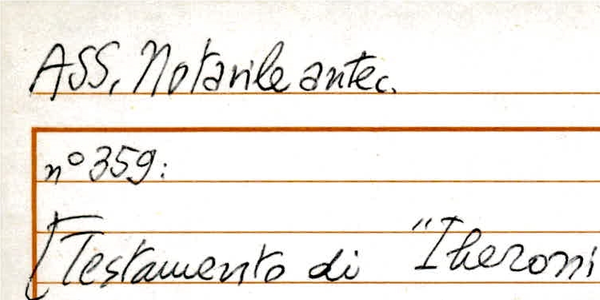 ASS, Notarile antec.
n° 359:
[Testamento di "Iheroni